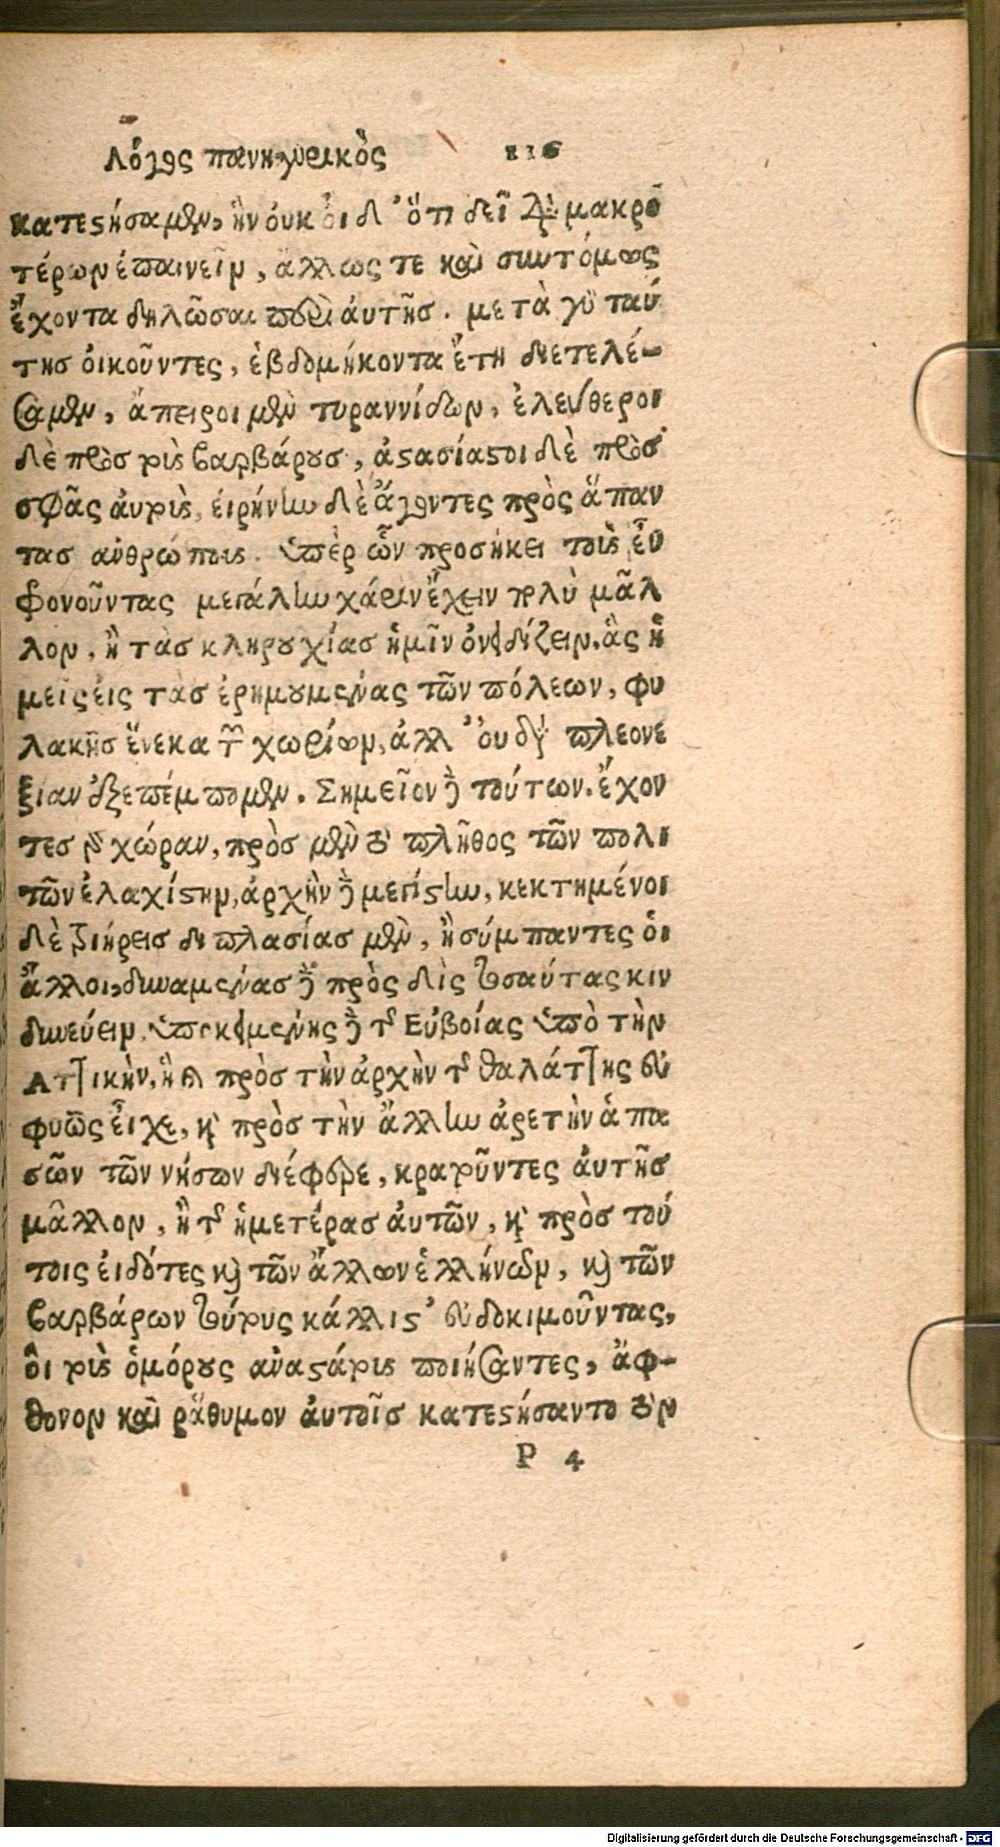 Λόγος πανηγυρικὸς 116
κατεστήσαμεν, ἣν ὀυκ ὀι δ' ὅτι δεῖ διὰ μακρο
τέρων ἐπαινεῖν, ἄλλως τε καὶ συντόμως
ἔχοντα δηλῶσαι περὶ ἀυτῆσ. μετὰ γὰρ ταύ
τησ ὀικοῦντες, ἑβδομήκοντα ἔτη διετελέ-
σαμεν, ἄπειροι μὲν τυραννίδων, ἐλεύθεροι
δὲ πρὸσ τοὺς βαρβάρουσ, ἀστασίαστοι δὲ πρὸσ
σφᾶς ἀυτοὺς, ἐιρήνην δὲ ἄγοντες πρὸς ἅπαν
τασ ἀνθρώπους. ὑπὲρ ὧν προσήκει τοὺς ἐυ
φρονοῦντας μεγάλην χάριν ἔχειν πολὺ μᾶλ
λον, ἢ τὰσ κληρουχίασ ἡμῖν ὀνειδίζειν, ἃς ἡ
μεῖς ἐις τὰσ ἐρημουμένας τῶν πόλεων, φυ
λακῆσ ἕνεκα τῶν χωρίων, ἀλλ' ὀυ διὰ πλεονε
ξίαν ἐξεπέμπομεν. Σημεῖον δὲ τούτων. ἔχον
τεσ γὰρ χώραν, πρὸσ μὲν τὸ πλῆθος τῶν πολι
τῶν ἐλαχίστην, ἀρχὴν δὲ μεγίστην, κεκτημένοι
δὲ τριήρεισ διπλασίασ μὲν, ἢ σύμπαντες ὁι
ἄλλοι, δυναμένασ δὲ πρὸς δὶς τοσαύτας κιν
δυνεύειν, ὑποκειμένης δὲ τῆς Ευβοίας ὑπὸ τὴν
Αττικὴν, ἣ καὶ πρὸσ τὴν ἀρχὴν τῆς θαλάττης ἐυ
φυῶς εἶχε, καὶ πρὸσ τὴν ἄλλην ἀρετὴν ἁπα
σῶν τῶν νήσων διέφερε, κρατοῦντες ἀυτῆσ
μᾶλλον, ἢ τῆς ἡμετέρασ ἀυτῶν, καὶ πρὸσ τού
τοις ἐιδότες καὶ τῶν ἄλλων ἑλλήνων, καὶ τῶν
βαρβάρων τούτους κάλλιστ' ἐυδοκιμοῦντας,
ὃι τοὺς ὁμόρους ἀναστάτους ποιήσαντες, ἄφ-
θονον καὶ ράθυμον ἀυτοῖσ κατεστήσαντο τὸν
P 4
Digitalisierung gefördert durch die Deutsche Forschungsgemeinschaft - DFG